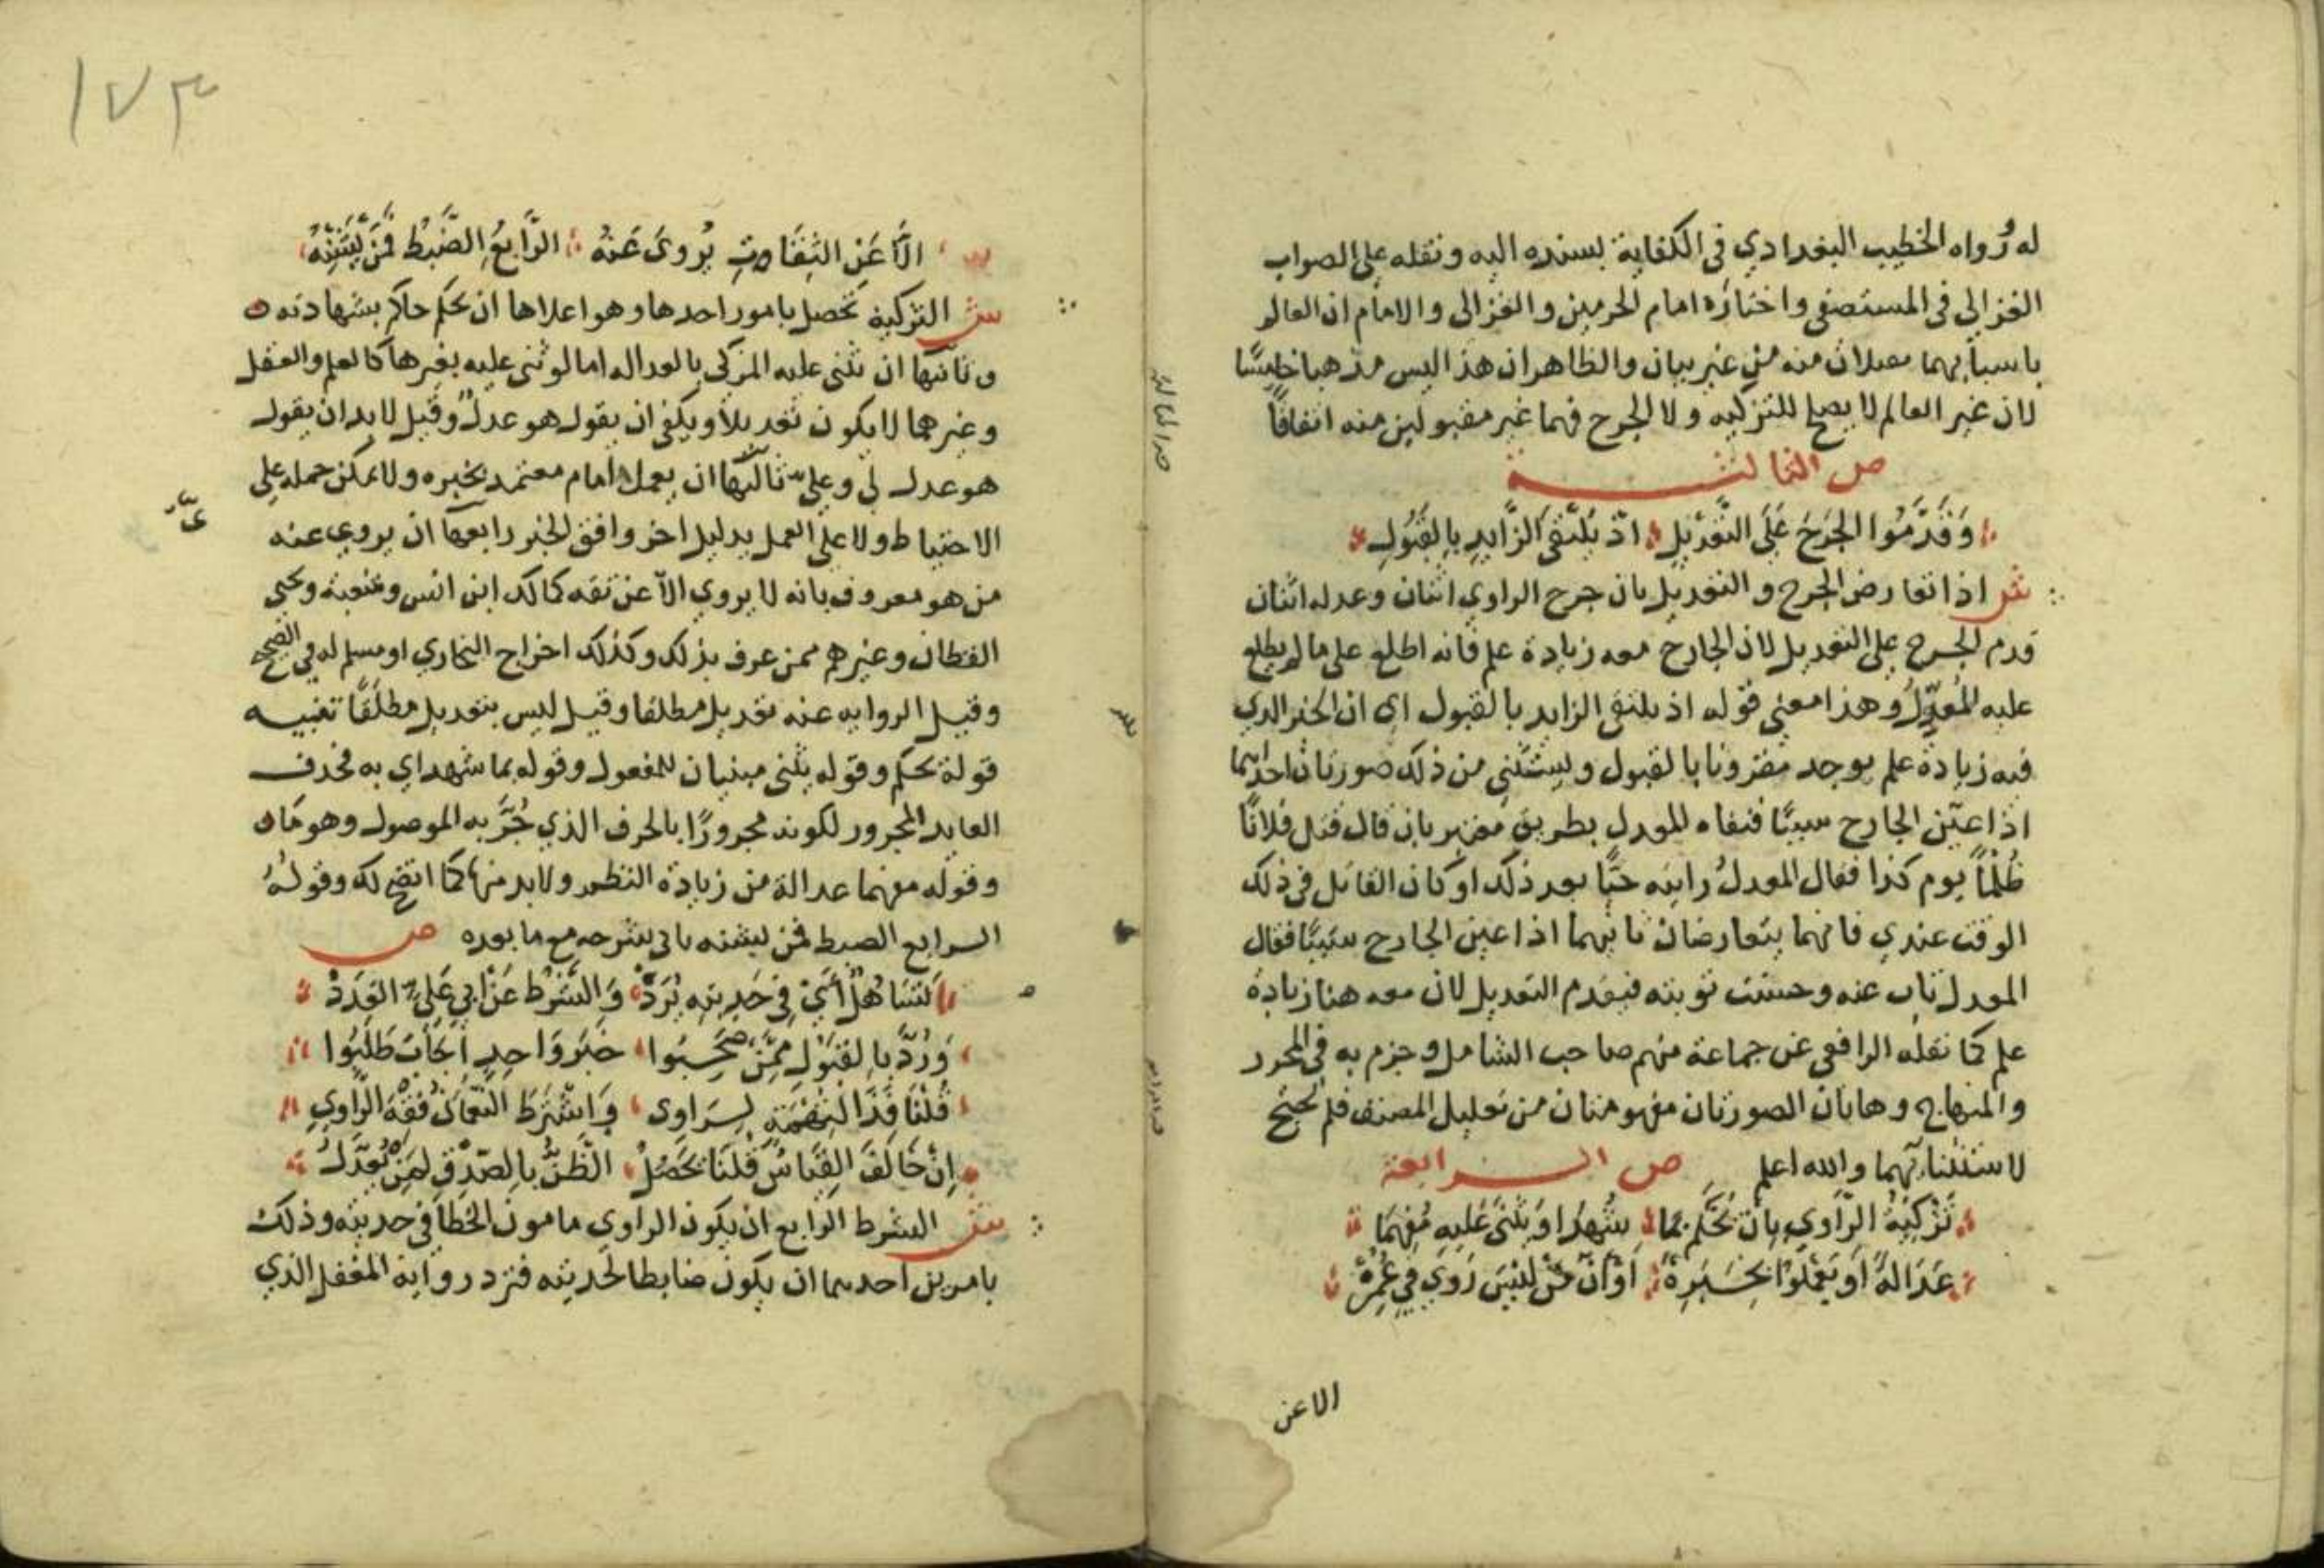 له رواه الخطيب البغدادي في الكفاية بسنده اليه ونقله على الصواب
الغزالي في المستصفى واختاره امام الحرمين والغزالي والامام ان العالم
باسبابهما يقبلان منه من غير بيان والظاهر ان هذا ليس مذهبا خامسًا
لان غير العالم لا يصح للتزكيه ولا الجرح فهما غير مقبولين منه اتفاقاً
ص الثالثة
وَقَدَّمُوا الجَرْحَ عَلَى التَّعْدِيلِ اذ يَلْتَقِي الزَّايِدِ بِالقَبُولِ
ش اذا تعارض الجرح والتعديل بان جرح الراوي اثنان وعدله اثنان
قدم الجرح على التعديل لان الجارح معه زيادة علم فانه اطلع على ما لم يطلع
عليه المُعَدِّلُ وهذا معنى قوله اذ يلتقى الزايد بالقبول اي ان الخبر الذي
فيه زيادة علم يوجد مقرونا بالقبول ويستثنى من ذلك صورتان احداهما
اذا عيّن الجارح سببًا فنفاه المعدل بطريق معتبر بان قال قتل فلانًا
ظُلْمًا يوم كذا فقال المعدلُ رايته حيًّا بعد ذلك او كان القاتل في ذلك
الوقت عندي فانهما يتعارضان ثانيهما اذا عين الجارح سببًا فقال
المعدل تاب عنه وحسنت توبته فيقدم التعديل لان معه هنا زيادة
علم كما نقله الرافعي عن جماعة منهم صاحب الشامل وجزم به في المحرر
والمنهاج وهاتان الصورتان مفهومتان من تعليل المصنف فلم يحتج
لاستثنائهما والله اعلم ص الرابعة
تَزْكِيَةُ الرَّاوِي بِاَنْ يُحْكَم بِمَا شُهِدَ اوَ يُثْنَى عَلَيهِ مُفْهِمَا
عَدَالةً اَو يَعْمَلُوا بِخَبَرِهْ اَوْ اَنَّ مَنْ لَيْسَ رَوَى في عُمْرِهْ
الا عن
١٧٣
الَّا عَنْ الثِقَاتِ يُرْوَى عَنْهُ الرَّابِعُ الضَّبْطُ فَمَنْ لَيْسَنهُ
ش التزكية تحصل بامور احدها وهو اعلاها ان يحكم حاكم بشهادته
وثانيها ان يثنى عليه المزكي بالعداله اما لو ثنى عليه بغيرها كالعلم والعقل
وغيرهما لا يكون تعديلًا ويكفي ان يقول هو عدلٌ وقيل لا بد ان يقول
هو عدل لي وعليّ ثالثها ان يعمل امام معتمد بخبره ولا يمكن حمله على
الاحتياط ولا على العمل بدليل اخر وافق الخبر رابعها ان يروي عنه
من هو معروف بانه لا يروي الّا عن ثقه كمالك ابن انس وشعبة ويحيى
القطان وغيرهم ممن عرف بذلك وكذلك اخراج البخاري او مسلم له في الصحيح
وقيل الروايه عنه تعديل مطلقا وقيل ليس بتعديل مطلقًا تنبيه
قولة يحكم وقوله يثنى مبنيان للمفعول وقوله بما شهد اي به فحذف
العايد المجرور لكونه مجرورًا بالحرف الذي جُرَّ به الموصول وهو ما
وقوله مفهما عدالة من زيادة النظم ولا بد منها كما اتضح لك وقولهُ
الرابع الضبط فمن ليسنه ياتي شرحه مع ما بعده ص
تَسَاهُلٌ اَيْ في حَدِيثِهِ يُرَدْ وَالشَّرْط عَن ابي عَلِيّ العَدَدْ
وَرُدَّ بِالقَبُوْلِ مِمَّنْ صَحِبُوا خَبَرَ وَاحِدٍ اَجَابَ طَلَبُوا
قُلْنَا لِرَاوى وَاشْتَرَطَ النُّعْمَانُ فِقْهَ الرَّاوِي
اِنْ خَالَفَ القِيَاسُ قُلْنَا يَحْصُلُ الظَّنُّ بِالصِّدْقِ لِمَنْ يُعَدَّلُ
ش الشرط الرابع ان يكون الراوي مامون الخطا في حديثه وذلك
بامرين احدهما ان يكون ضابطا لحديثه فترد رواية المغفل الذي